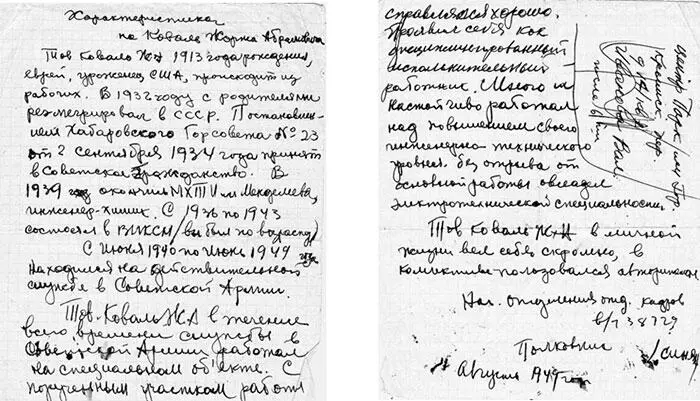 Характеристика
на Коваля Жоржа Абрамовича
Тов Коваль ЖА 1913 года рождения,
еврей, уроженец США, происходит из
рабочих. В 1932 году с родителями
реэмигрировал в СССР. Постановле-
нием Хабаровского Горсовета № 23
от 2 сентября 1934 года принят
в Советское гражданство. В
1939 году окончил МХТИ им Менделеева,
инженер-химик. С 1936 по 1943
состоял в ВЛКСМ (выбыл по возрасту)
С Июня 1940 по Июнь 1949 года
находился на действительной
службе в Советской Армии.
Тов. Коваль ЖА в течение
всего времени службы в
Советской Армии работал
на специальном объекте. С
порученным участком работы
справлялся хорошо.
Проявил себя как
дисциплинированный
исполнительный
работник. Много и
настойчиво работал
над повышением своего
инженерно-технического
уровня. без отрыва от
основной работы овладел
электротехнической специальностью.
Тов Коваль ЖА в личной
жизни вел себя скромно, в
коллективе пользовался авторитетом
Нач. отделения отд. кадров
в/ч 38729
Полковник
Август 1949 год
Центр Парк
Иванова Вал.